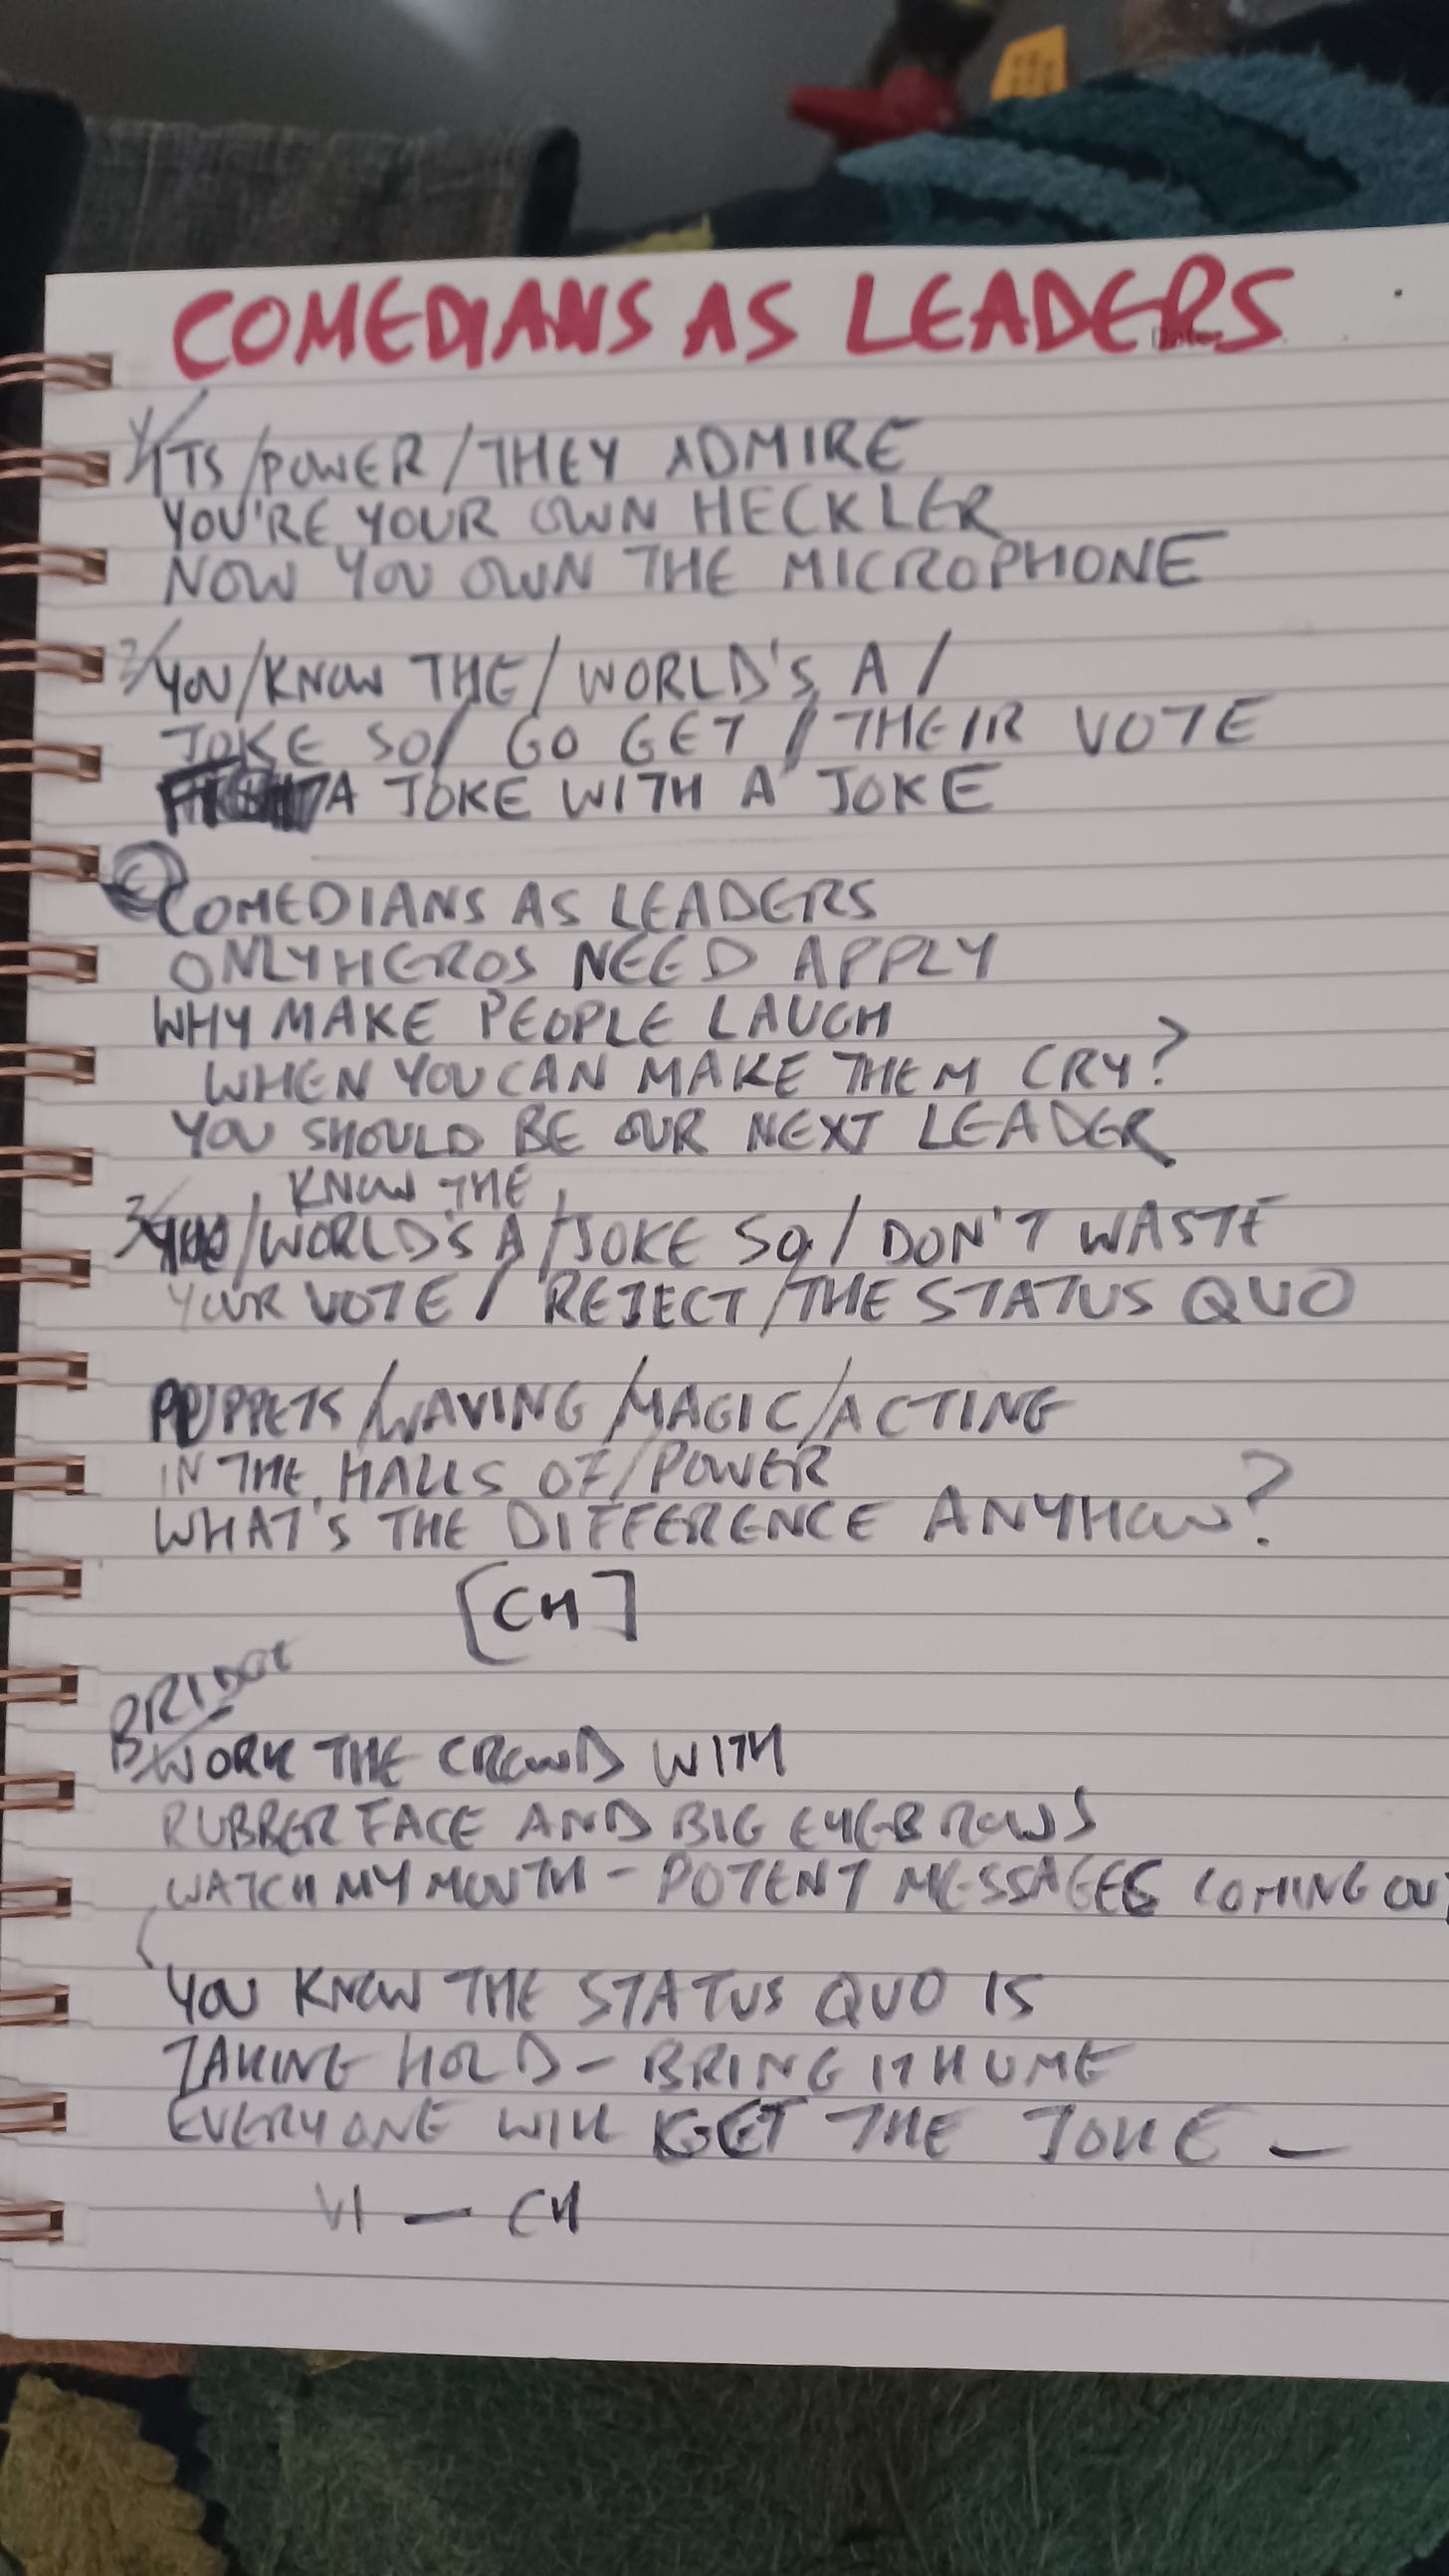 COMEDIANS AS LEADERS
1/ ITS/POWER/THEY ADMIRE
YOU'RE YOUR OWN HECKLER
NOW YOU OWN THE MICROPHONE
2/ YOU/KNOW THE/WORLD'S A/
JOKE SO/ GO GET / THEIR VOTE
A JOKE WITH A JOKE
C COMEDIANS AS LEADERS
ONLY HEROS NEED APPLY
WHY MAKE PEOPLE LAUGH
WHEN YOU CAN MAKE THEM CRY?
YOU SHOULD BE OUR NEXT LEADER
KNOW THE
3/ YOU/WORLD'S A/JOKE SO/DON'T WASTE
YOUR VOTE/ REJECT/THE STATUS QUO
PUPPETS/WAVING/MAGIC/ACTING
IN THE HALLS OF/POWER
WHAT'S THE DIFFERENCE ANYHOW?
[CH]
BRIDGE
WORK THE CROWD WITH
RUBBER FACE AND BIG EYEBROWS
WATCH MY MOUTH - POTENT MESSAGES COMING OU
YOU KNOW THE STATUS QUO IS
TAKING HOLD - BRING IT HOME
EVERYONE WILL GET THE JOKE -
V1 - CH